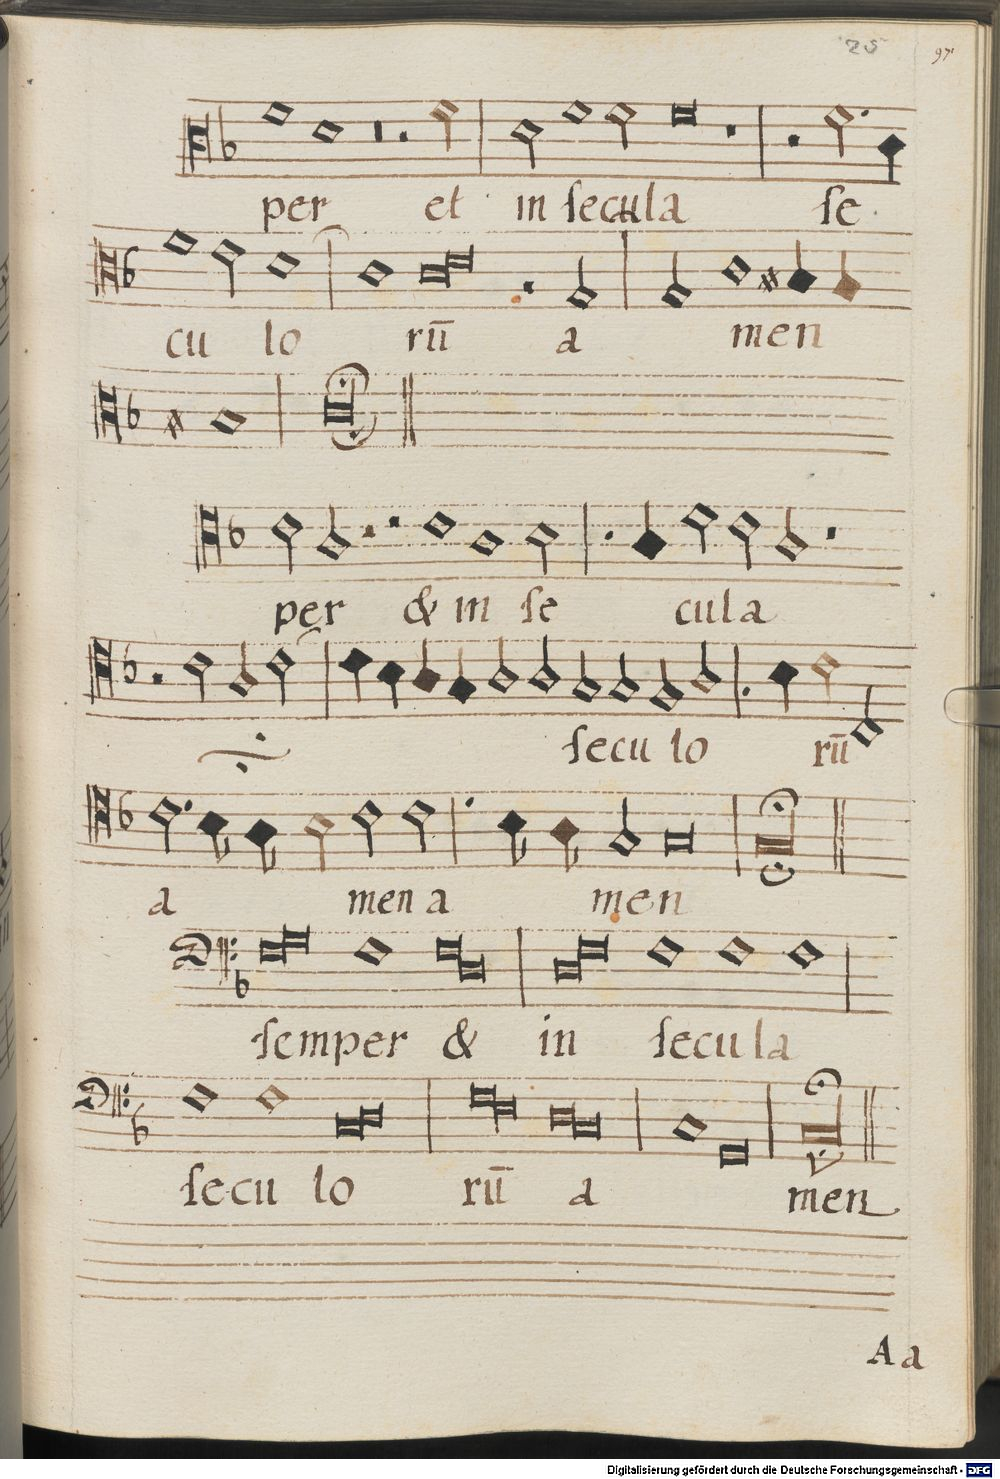 25
97
per et in secula se
cu lo rū a men
per & in se cula
secu lo rū
a men a men
semper & in secula
secu lo rū a men
A a
Digitalisierung gefördert durch die Deutsche Forschungsgemeinschaft - DFG